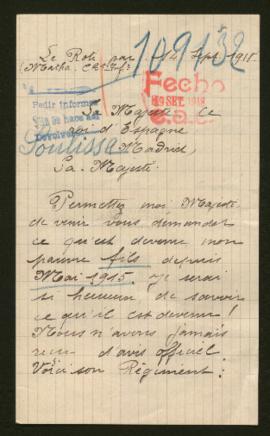 Le Roti par
109132
4 Sept 1918.
Fecho
9 SET. 1918
Pedir informes
Devolver
Sa Majesté Le
roi d'Espagne
Madrid
Sa Majesté:
Permettez moi Majesté
de venir vous demander
ce qu'est devenu mon
pauvre fils depuis
Mai 1915. Je serai
si heureux de savoir
ce qu'il est devenu!
Nous n'avons jamais
reçu d'avis officiel.
Voici son Régiment: